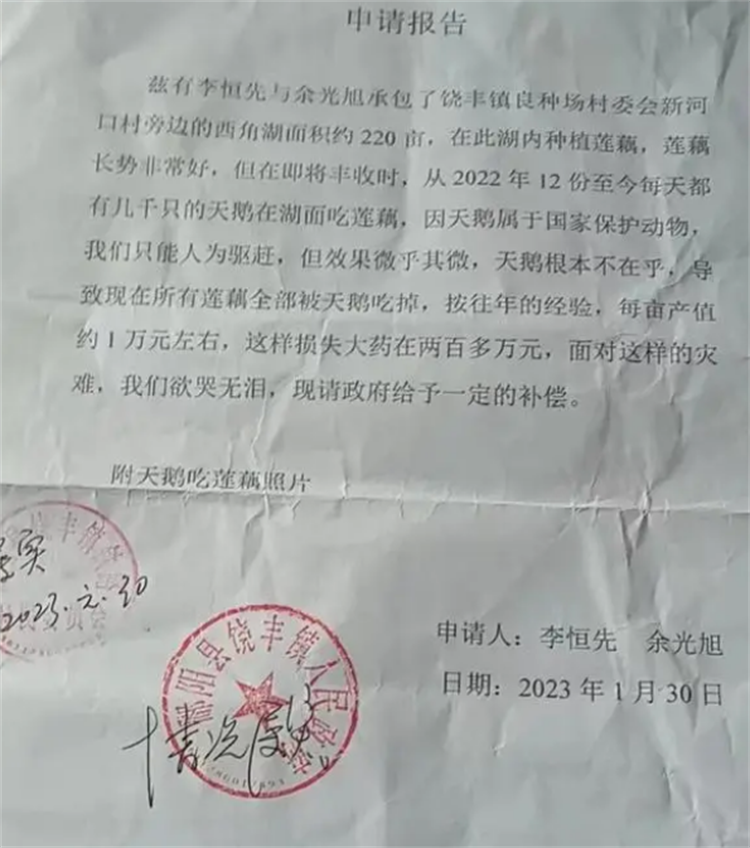 申请报告
兹有李恒先与余光旭承包了饶丰镇良种场村委会新河
口村旁边的西角湖面积约220亩，在此湖内种植莲藕，莲藕
长势非常好，但在即将丰收时，从2022年12份至今每天都
有几千只的天鹅在湖面吃莲藕，因天鹅属于国家保护动物，
我们只能人为驱赶，但效果微乎其微，天鹅根本不在乎，导
致现在所有莲藕全部被天鹅吃掉，按往年的经验，每亩产值
约1万元左右，这样损失大药在两百多万元，面对这样的灾
难，我们欲哭无泪，现请政府给予一定的补偿。
附天鹅吃莲藕照片
实
2023.元.30
申请人：李恒先 余光旭
日期：2023年1月30日
阳县饶丰镇人民政府
情况属实